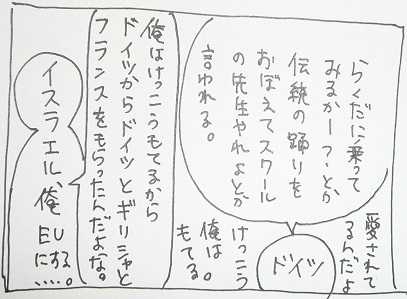 愛されて
るんだよ
ドイツ
けっこう
俺は
もてる。
らくだに乗って
みるかー?とか
伝統の踊りを
おぼえてスクール
の先生やれよとか
言われる。
俺はけっこうもてるから
ドイツからドイツとギリシャと
フランスをもらったんだよな。
イスラエル、俺
EUにする
.....。